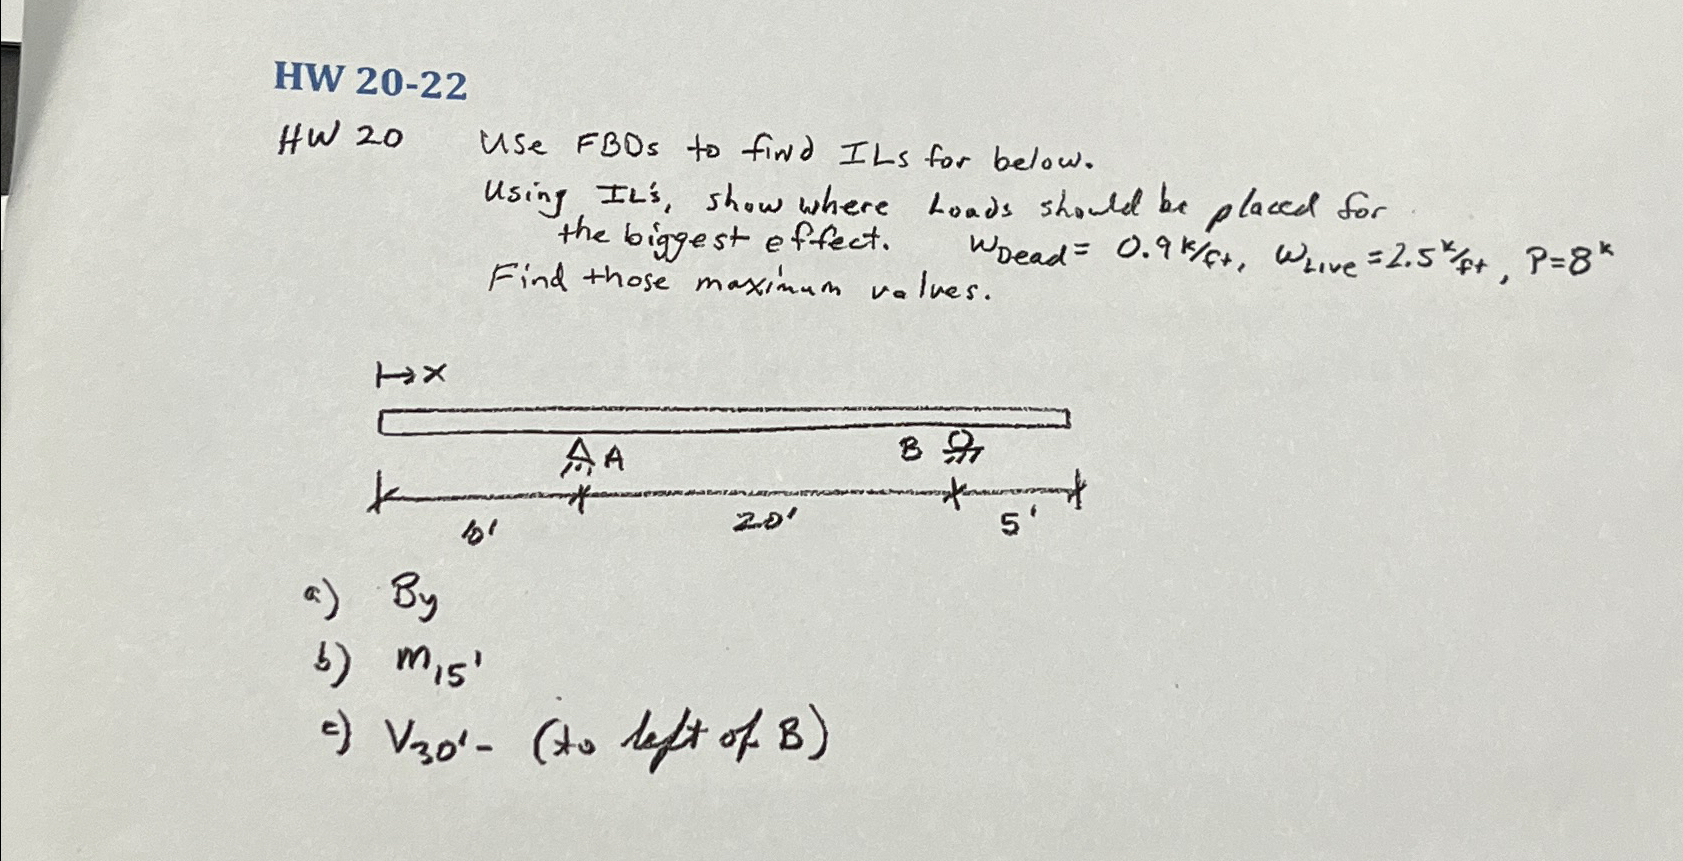 HW 20-22
HW 20 Use FBDs to find ILs for below.
Using IL's, show where Loads should be placed for
the biggest effect. WDead = 0.9 k/ft, WLive = 2.5 k/ft, P=8k
Find those maximum values.
x
A B
10' 20' 5'
a) By
b) M15'
c) V30'- (to left of B)